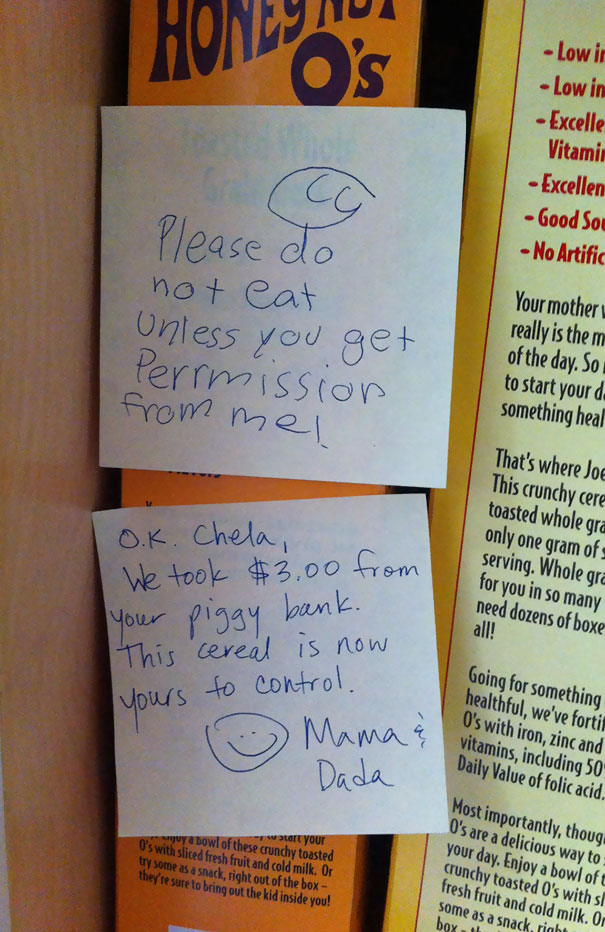 HONEY NUT
O's
Toasted Whole
CC
Please do
not eat
Unless you get
Perrmission
from me!
O.K. Chela,
We took $3.00 from
your piggy bank.
This cereal is now
yours to control.
Mama &
Dada
a bowl of these crunchy toasted
O's with sliced fresh fruit and cold milk. Or
try some as a snack, right out of the box –
they're sure to bring out the kid inside you!
- Low
- Low
-
- Good
- No
Your mother
really is the
of the day. So
to start your
something
That's where
This crunchy
toasted whole
only one gram of
serving. Whole
for you in so many
need dozens of
all!
Going for something
healthful, we've
O's with iron, zinc and
vitamins, including
Daily Value of folic acid.
Most importantly,
O's are a delicious way to
your day. Enjoy a bowl of
crunchy toasted O's with
fresh fruit and cold milk. Or
some as a snack,
box –